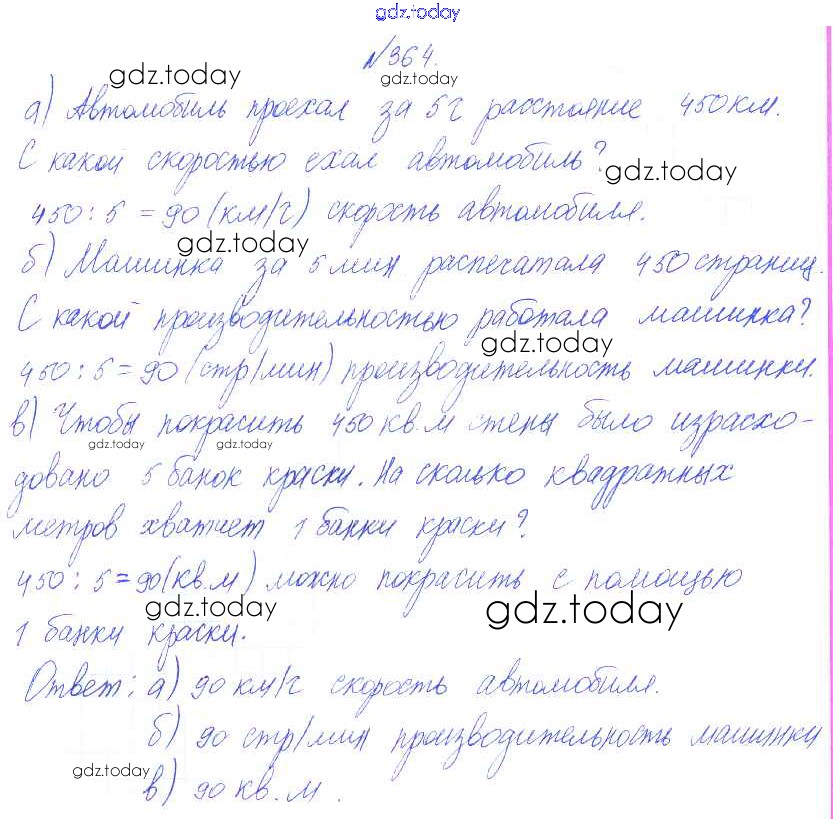 gdz.today
№364.
gdz.today gdz.today
а) Автомобиль проехал за 5 г расстояние 450 км.
С какой скоростью ехал автомобиль?
gdz.today
450 : 5 = 90 (км/г) скорость автомобиля.
gdz.today
б) Машинка за 5 мин распечатала 450 страниц.
С какой производительностью работала машинка?
gdz.today
450 : 5 = 90 (стр/мин) производительность машинки.
в) Чтобы покрасить 450 кв.м стены было израсхо-
gdz.today gdz.today
довано 5 банок краски. На сколько квадратных
метров хватит 1 банки краски?
450 : 5 = 90 (кв.м) можно покрасить с помощью
gdz.today gdz.today
1 банки краски.
Ответ: а) 90 км/г скорость автомобиля.
б) 90 стр/мин производительность машинки
gdz.today
в) 90 кв.м.